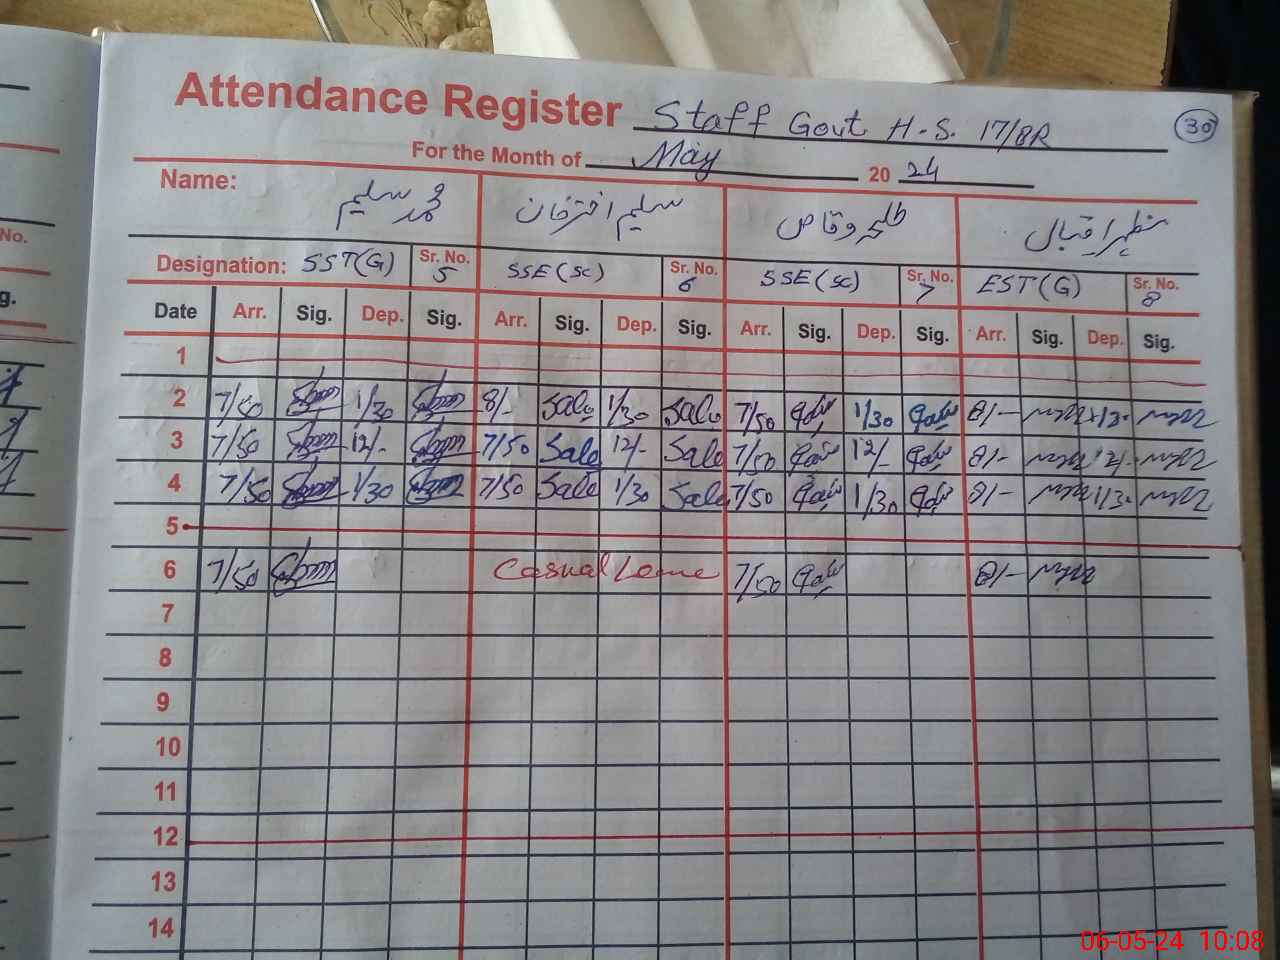 Attendance Register Staff Govt H.S. 17/8R 30
For the Month of May 20 24
Name: محمد سلیم سلیم اختر خان طلحہ وقاص مظہر اقبال
Designation: SST(G) Sr. No. 5 SSE(SC) Sr. No. 6 SSE(SC) Sr. No. 7 EST(G) Sr. No. 8
Date Arr. Sig. Dep. Sig. Arr. Sig. Dep. Sig. Arr. Sig. Dep. Sig. Arr. Sig. Dep. Sig.
1
2 7/50 1/30 8/- 1/30 7/50 1/30 8/- 1/30
3 7/50 12/- 7/50 12/- 7/50 12/- 8/- 12/-
4 7/50 1/30 7/50 1/30 7/50 1/30 8/- 1/30
5
6 7/50 Casual Leave 7/50 8/-
7
8
9
10
11
12
13
14
No.
g.
06-05-24 10:08